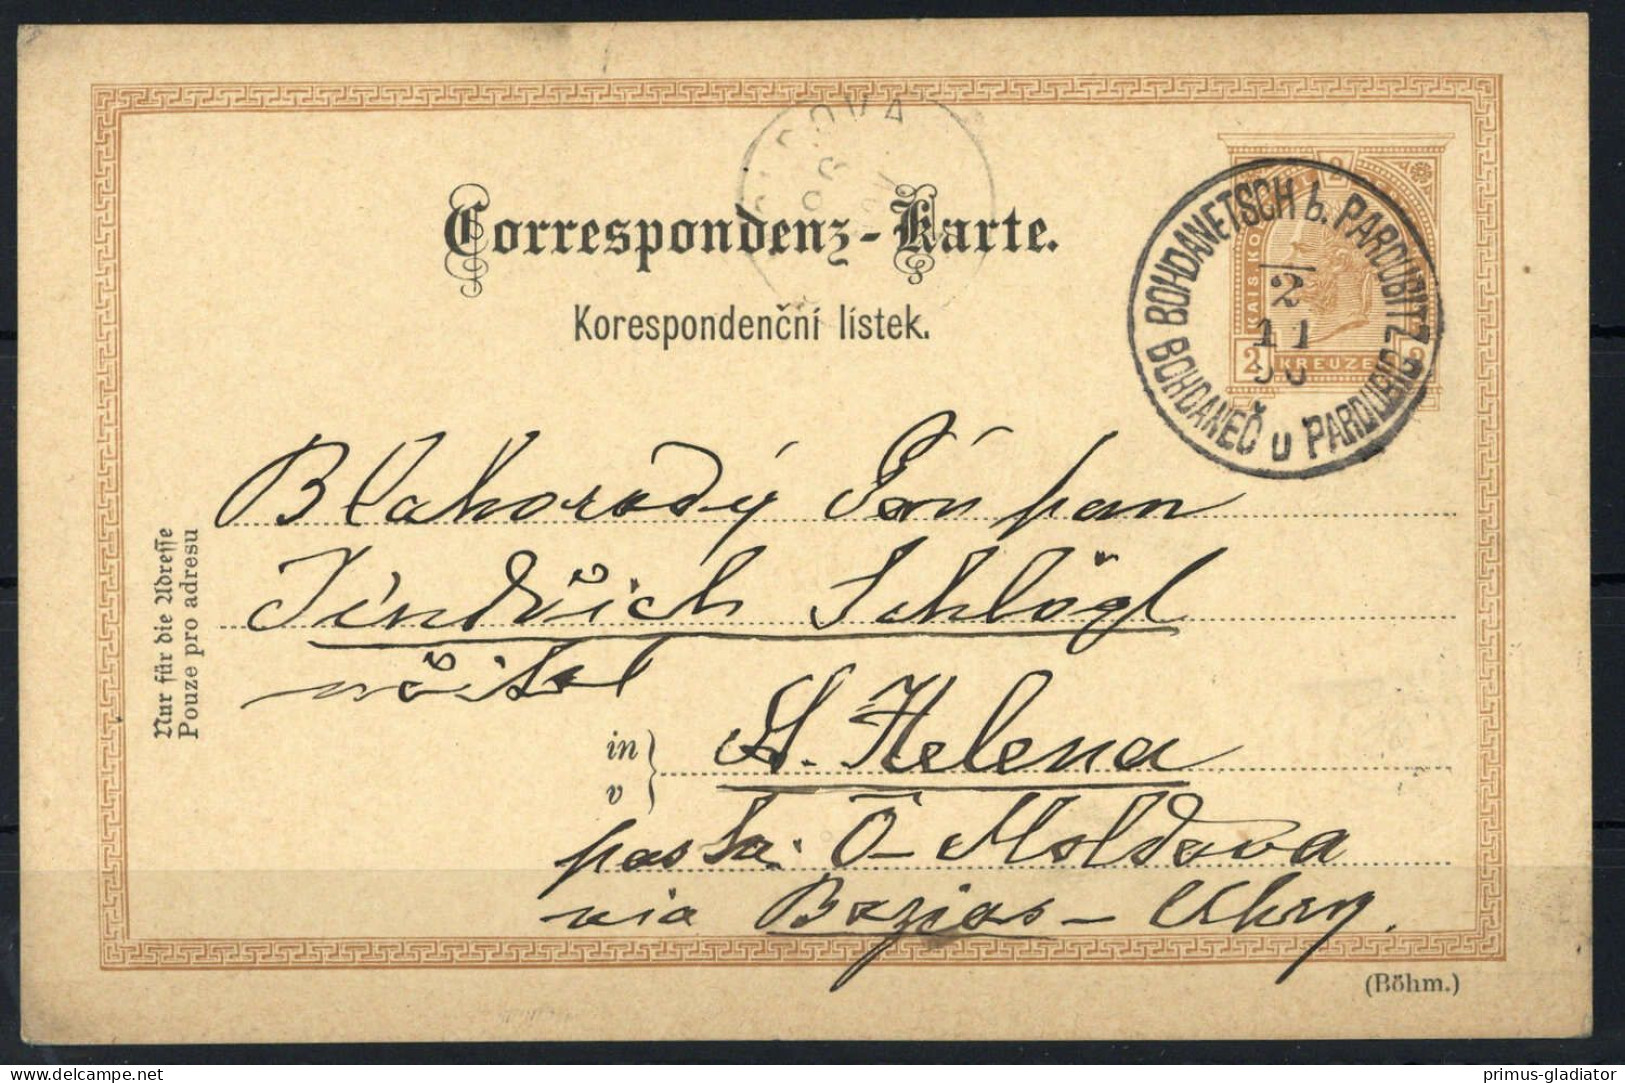 Correspondenz-Karte.
Korespondenční lístek.
KAIS. KO
2 KREUZE
BOHDANETSCH b. PARDUBITZ
2
11
BOHDANEČ u PARDUBIC
DOVA
96
Nur für die Adresse
Pouze pro adresu
Blahorodý pan
Jindřich Schlögl
učitel
in
v
St. Helena
pošta: Ó-Moldova
via Bazias - Uhry.
(Böhm.)
https://www.delcampe.net
primus-gladiator